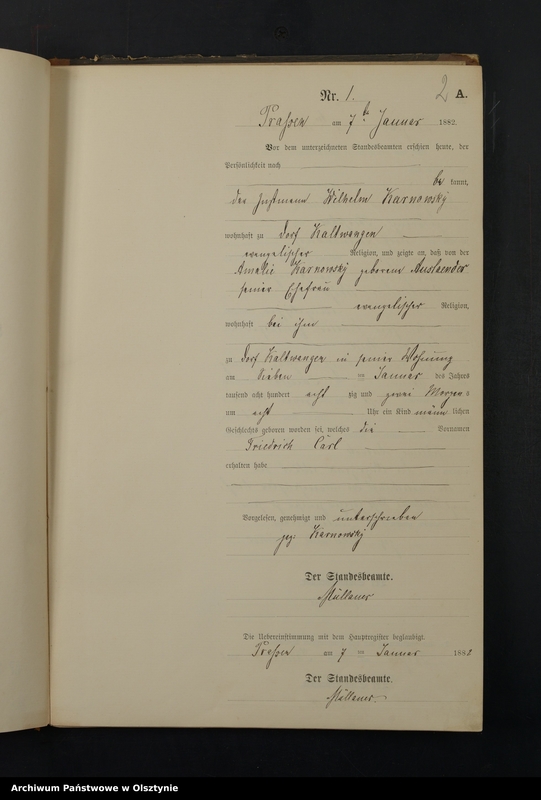 Nr. 1. 2 A.
Prassen am 7ten Januar 1882.
Vor dem unterzeichneten Standesbeamten erschien heute, der
Persönlichkeit nach
be kannt,
der Instmann Wilhelm Karnowsky
wohnhaft zu Dorf Kaltwangen
evangelischer Religion, und zeigte an, daß von der
Amalie Karnowsky geborene Auslaender
seiner Ehefrau
evangelischer Religion,
wohnhaft bei ihm
zu Dorf Kaltwangen in seiner Wohnung
am sieben ten Januar des Jahres
tausend acht hundert acht zig und zwei Morgens
um acht Uhr ein Kind männ lichen
Geschlechts geboren worden sei, welches die Vornamen
Friedrich Carl
erhalten habe
Vorgelesen, genehmigt und unterschrieben
gez. Karnowsky
Der Standesbeamte.
Die Uebereinstimmung mit dem Hauptregister beglaubigt.
Prassen am 7 ten Januar 1882
Der Standesbeamte.
Archiwum Państwowe w Olsztynie